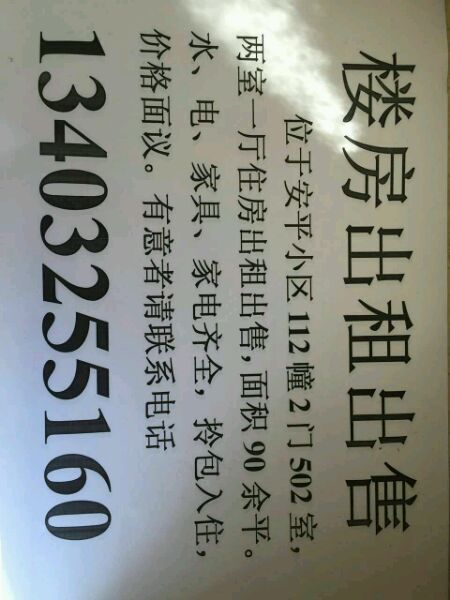 楼房出租出售
位于安平小区112幢2门502室，
两室一厅住房出租出售，面积90余平。
水、电、家具、家电齐全，拎包入住，
价格面议。有意者请联系电话
13403255160